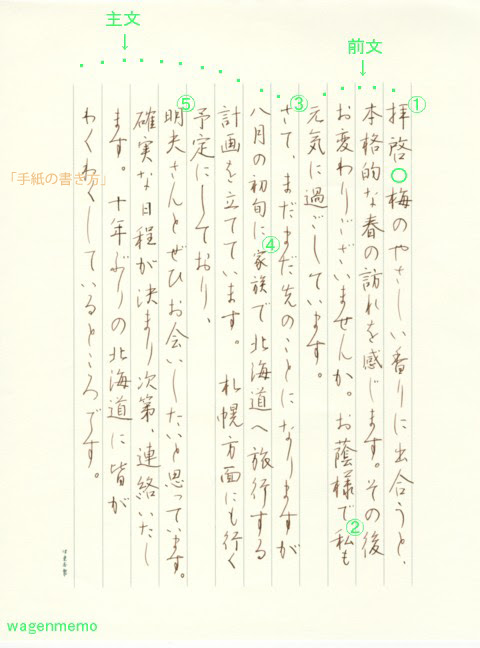 主文
↓
前文
↓
①
拝啓○梅のやさしい香りに出合うと、
本格的な春の訪れを感じます。その後
お変わりございませんか。お蔭様で②私も
元気に過ごしています。
③
さて、まだまだ先のことになりますが
八月の初旬に④家族で北海道へ旅行する
計画を立てています。 札幌方面にも行く
予定にしており、
⑤
明夫さんとぜひお会いしたいと思っています。
確実な日程が決まり次第、連絡いたし
ます。十年ぶりの北海道に皆が
わくわくしているところです。
「手紙の書き方」
wagenmemo